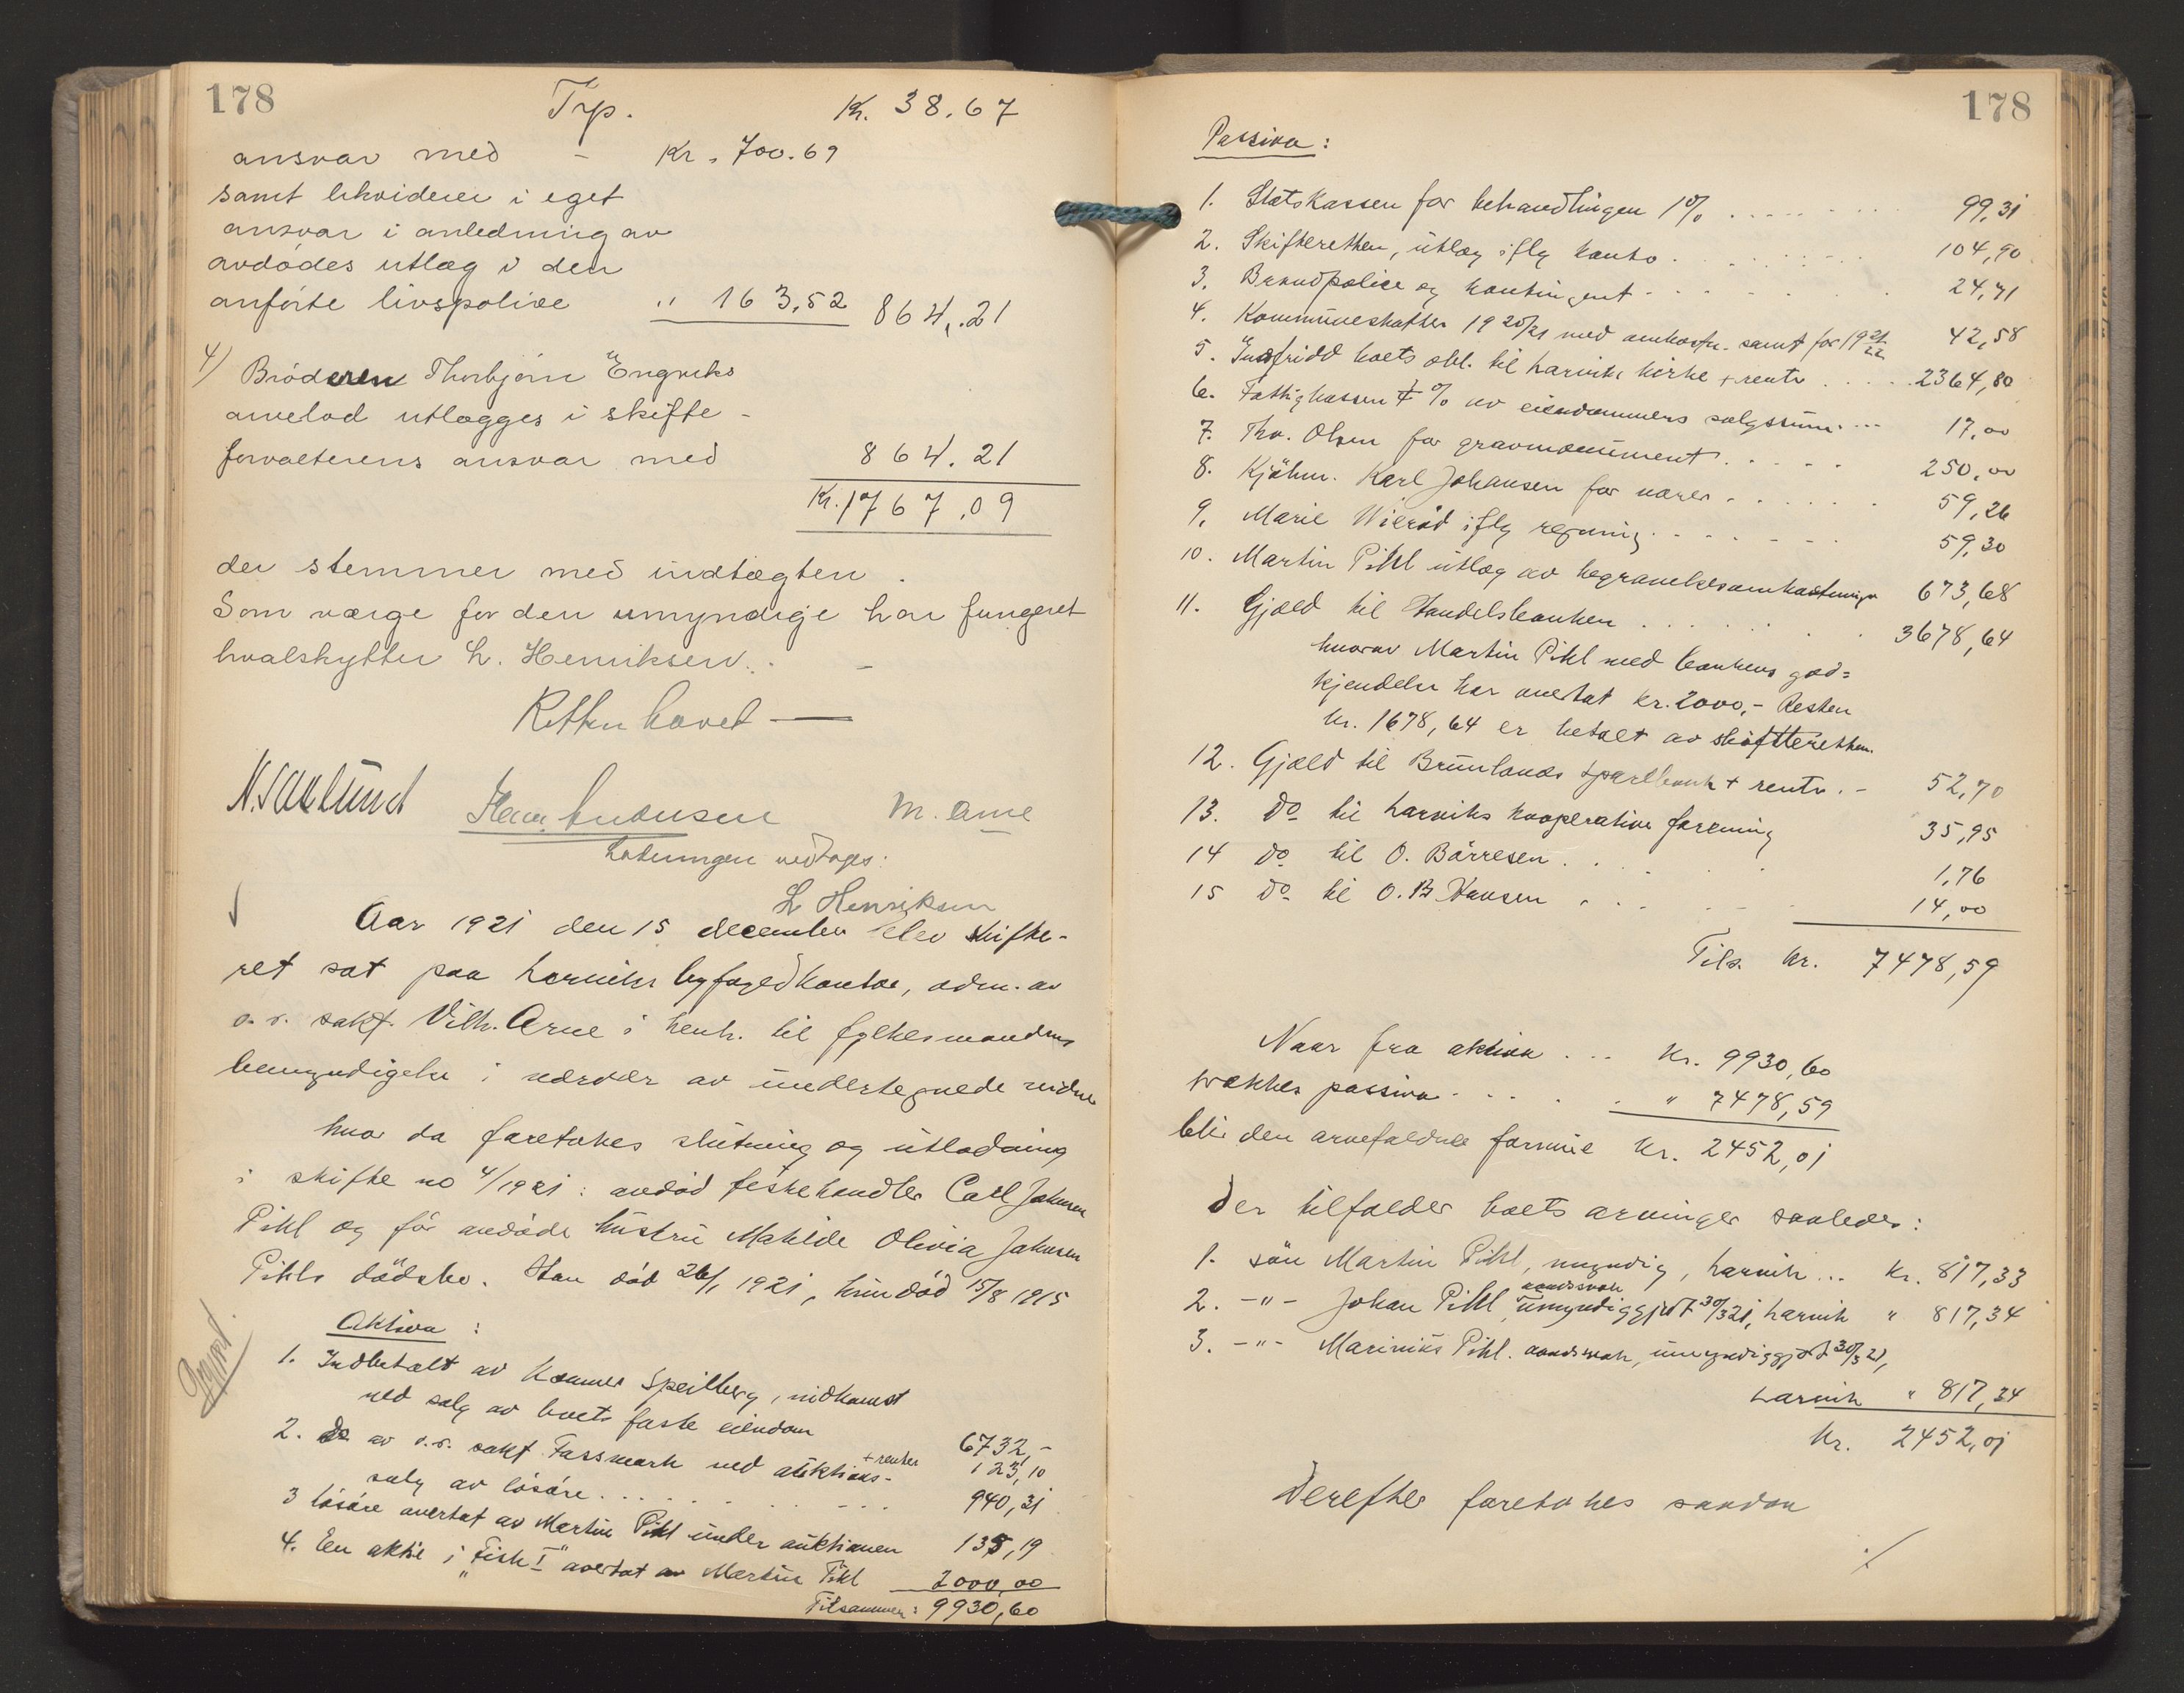 178
Trp. Kr. 38.67
ansvar med - Kr. 700.69
samt likviderer i eget
ansvar i anledning av
avdødes utlæg i den
anførte livspolice " 163,52 864.21
4) Brøderen Thorbjørn Engviks
arvelod utlægges i skifte-
forvalterens ansvar med 864.21
Kr. 1767.09
der stemmer med indtægten.
Som værge for den umyndige har fungeret
hvalskytter L. Henriksen. -
Retten hævet —
Utlodningen vedtages:
L Henriksen
Aar 1921 den 15 december blev skifte-
ret sat paa Larviks byfogedkontor, adm. av
o.r. sakf. Vilh. Arne i henh. til fylkesmandens
bemyndigelse i nærvær av undertegnede vidne
hvor da foretokes slutning og utlodning
i skifte no 4/1921: avdød fiskehandler Carl Johnsen
Pihl og før avdøde hustru Mathilde Olivia Johnsen
Pihls dødsbo. Han død 26/1 1921, hun død 15/8 1915
Aktiva:
1. Indbetalt av Konner Speilberg, vidkomst
ved salg av boets faste eiendom 6732,-
+ renter 123,10
2. Do av o.r. sakf. Fassmark ved auktions-
salg av løsøre 940,31
3 løsøre overtat av Martin Pihl under auktionen 135,19
4. En aktie i "Fisk I" overtat av Martin Pihl 2000,00
Tilsammen: 9930,60
178
Passiva:
1. Statskassen for behandlingen 1% 99,31
2. Skifteretten, utlæg iflg konto 104,90
3. Brandpolice og kontingent 24,71
4. Kommuneskatter 1920/21 med omkostn. samt for 1921/22 42,58
5. Indfridd boets obl. til Larviks kirke + rente 2364,80
6. Fattigkassen ¼ % av eiendommens salgssum 17,00
7. Thv. Olsen for gravmonument 250,00
8. Kjøbm. Karl Johansen for varer 59,26
9. Marie Wierød iflg regning 59,30
10. Martin Pihl utlæg av begravelsesomkostninger 673,68
11. Gjæld til Handelsbanken 3678,64
hvorav Martin Pihl med bankens god=
kjendelse har overtat kr. 2000,- Resten
kr. 1678,64 er betalt av skifteretten.
12. Gjæld til Brunlanes sparebank + rente. - 52,70
13. Do til Larviks kooperative forening 35,95
14 do til O. Børresen 1,76
15 do til O. B. Hansen 14,00
Tils. kr. 7478,59
Naar fra aktiva ... kr. 9930,60
trækkes passiva " 7478,59
blir den arvefaldne formue kr. 2452,01
Der tilfalder boets arvinger saaledes:
1. søn Martin Pihl, myndig, Larvik ... kr. 817,33
2. -"- Johan Pihl, aandssvak umyndiggjort 30/3 21, Larvik " 817,34
3. -"- Marinius Pihl. aandssvak, umyndiggjort 30/3 21,
Larvik " 817,34
kr. 2452,01
Derefter foretokes saadan
./.